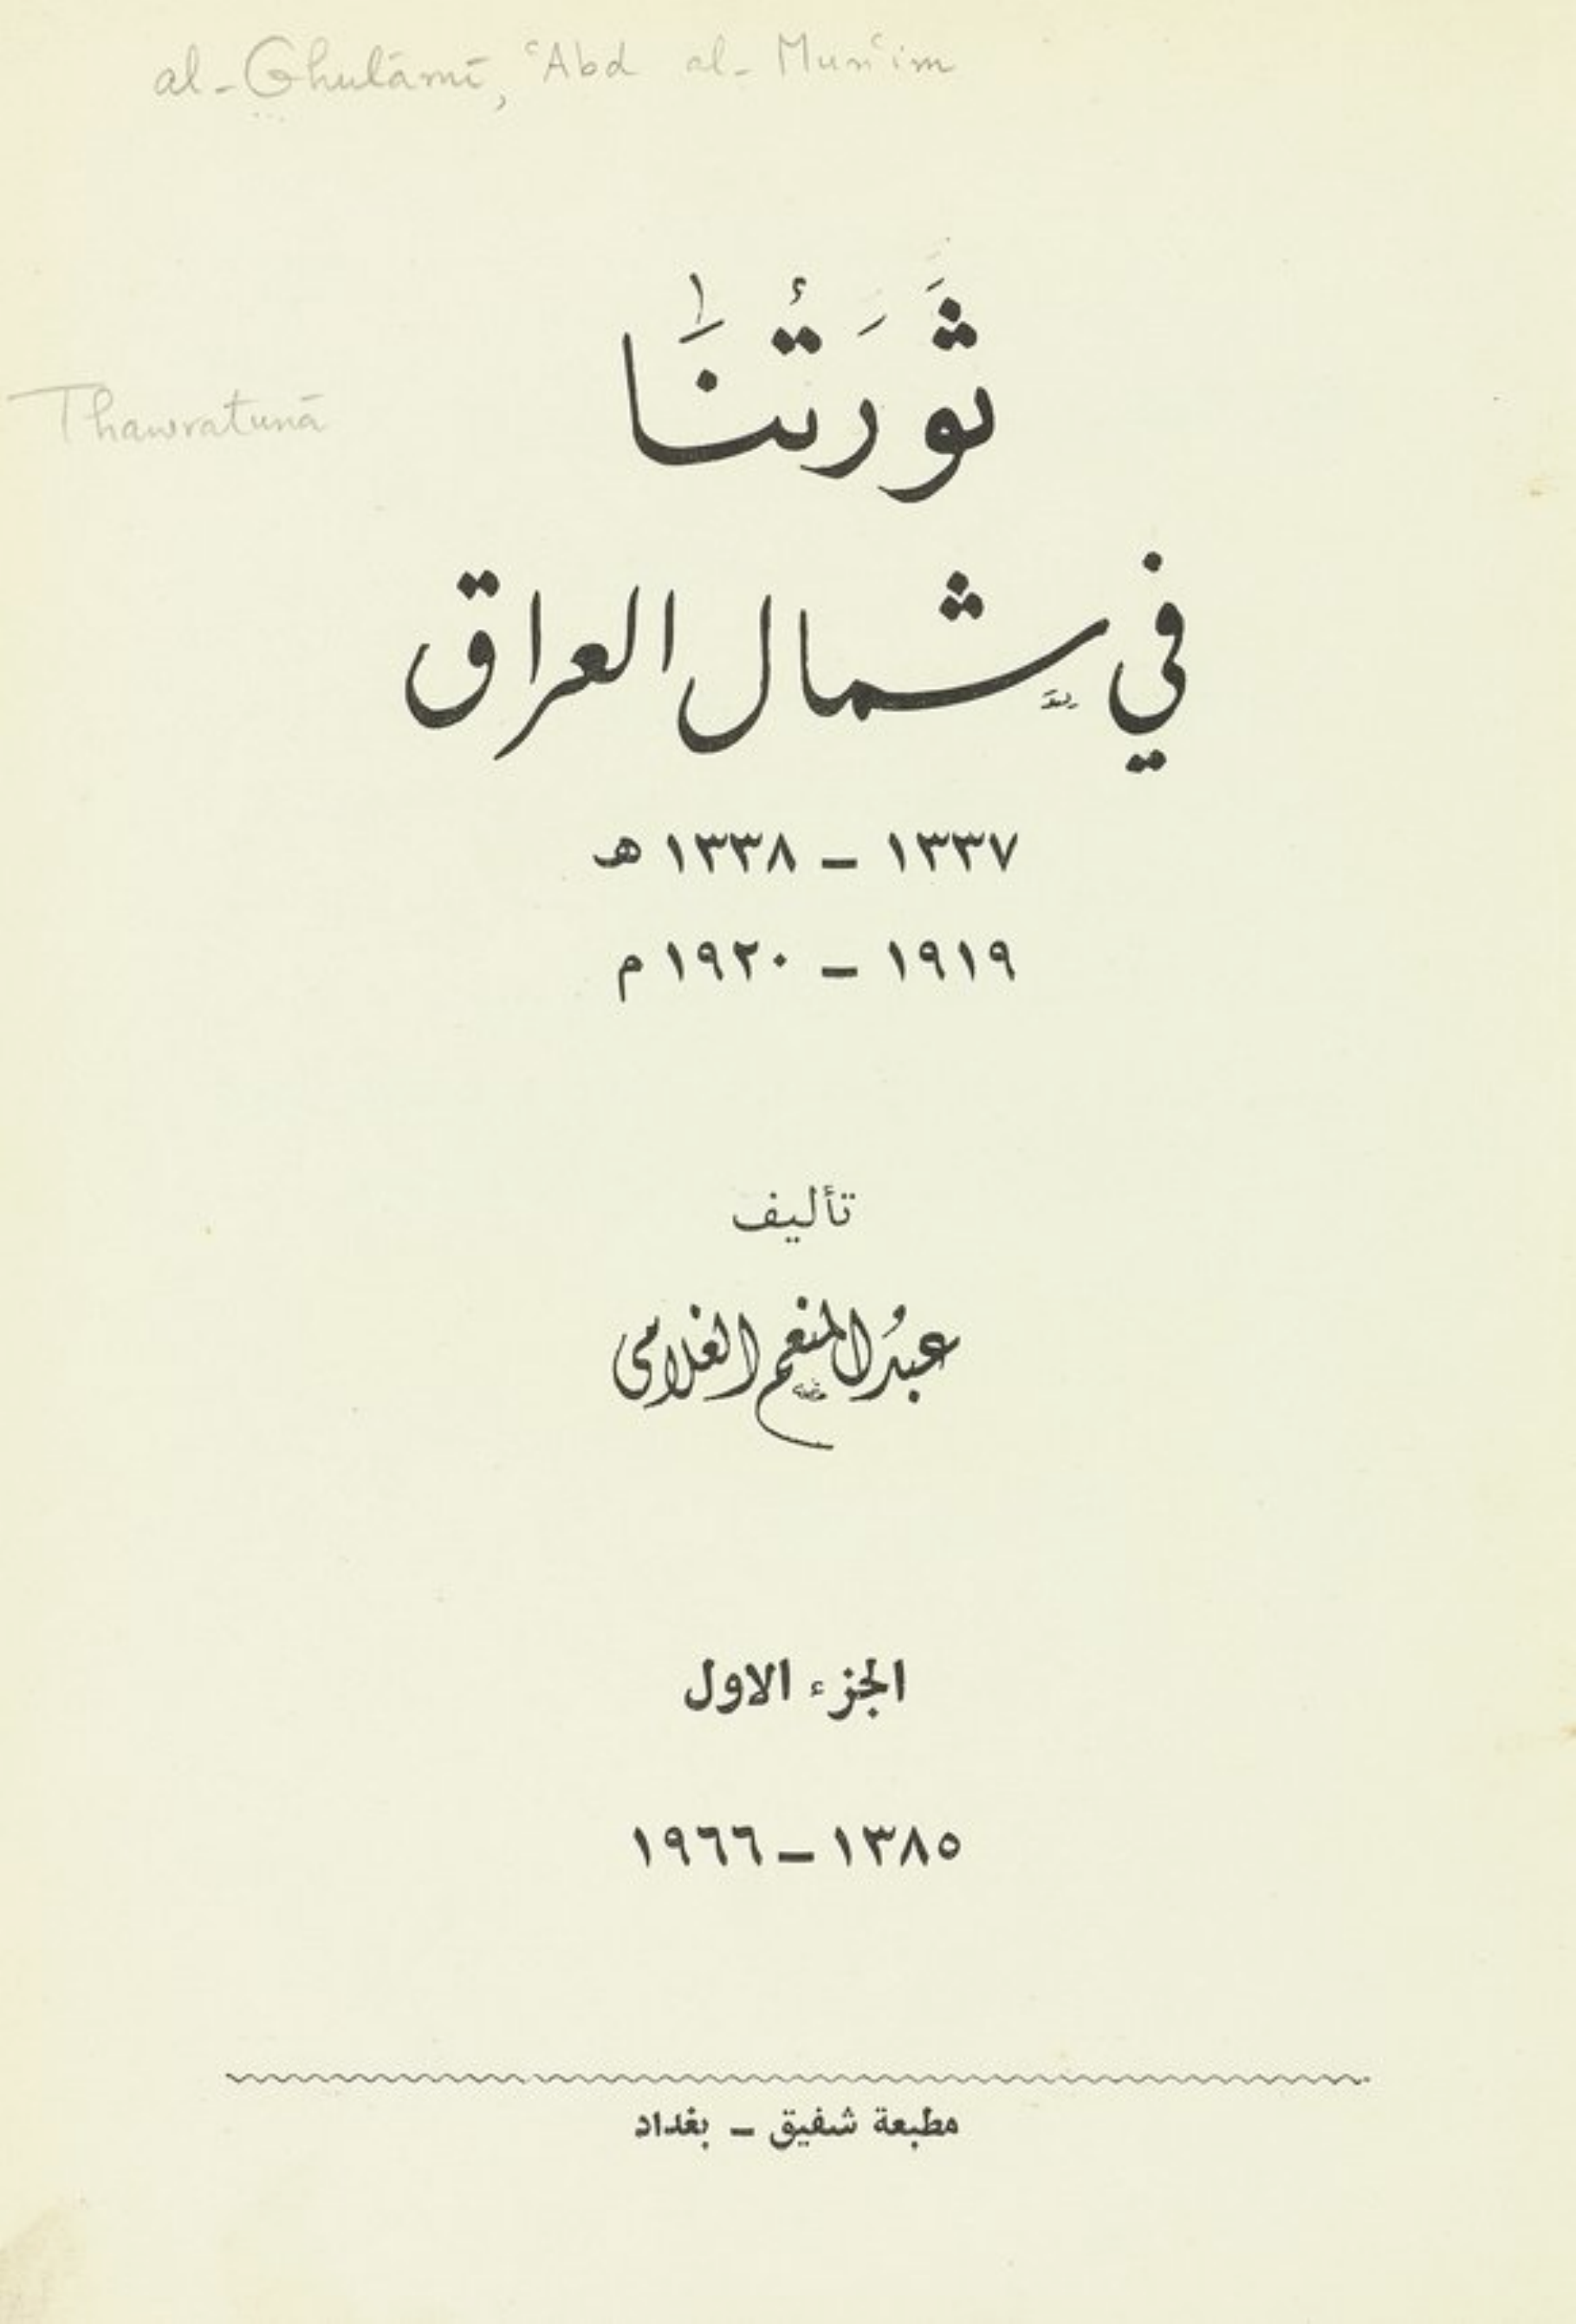 al-Ghulāmī, ʿAbd al-Munʿim
ثَورَتُنَا
Thawratunā
في شمال العراق
١٣٣٧ – ١٣٣٨ هـ
١٩١٩ – ١٩٢٠ م
تأليف
عبدُ المنعم الغلامى
الجزء الاول
١٣٨٥ – ١٩٦٦
مطبعة شفيق – بغداد